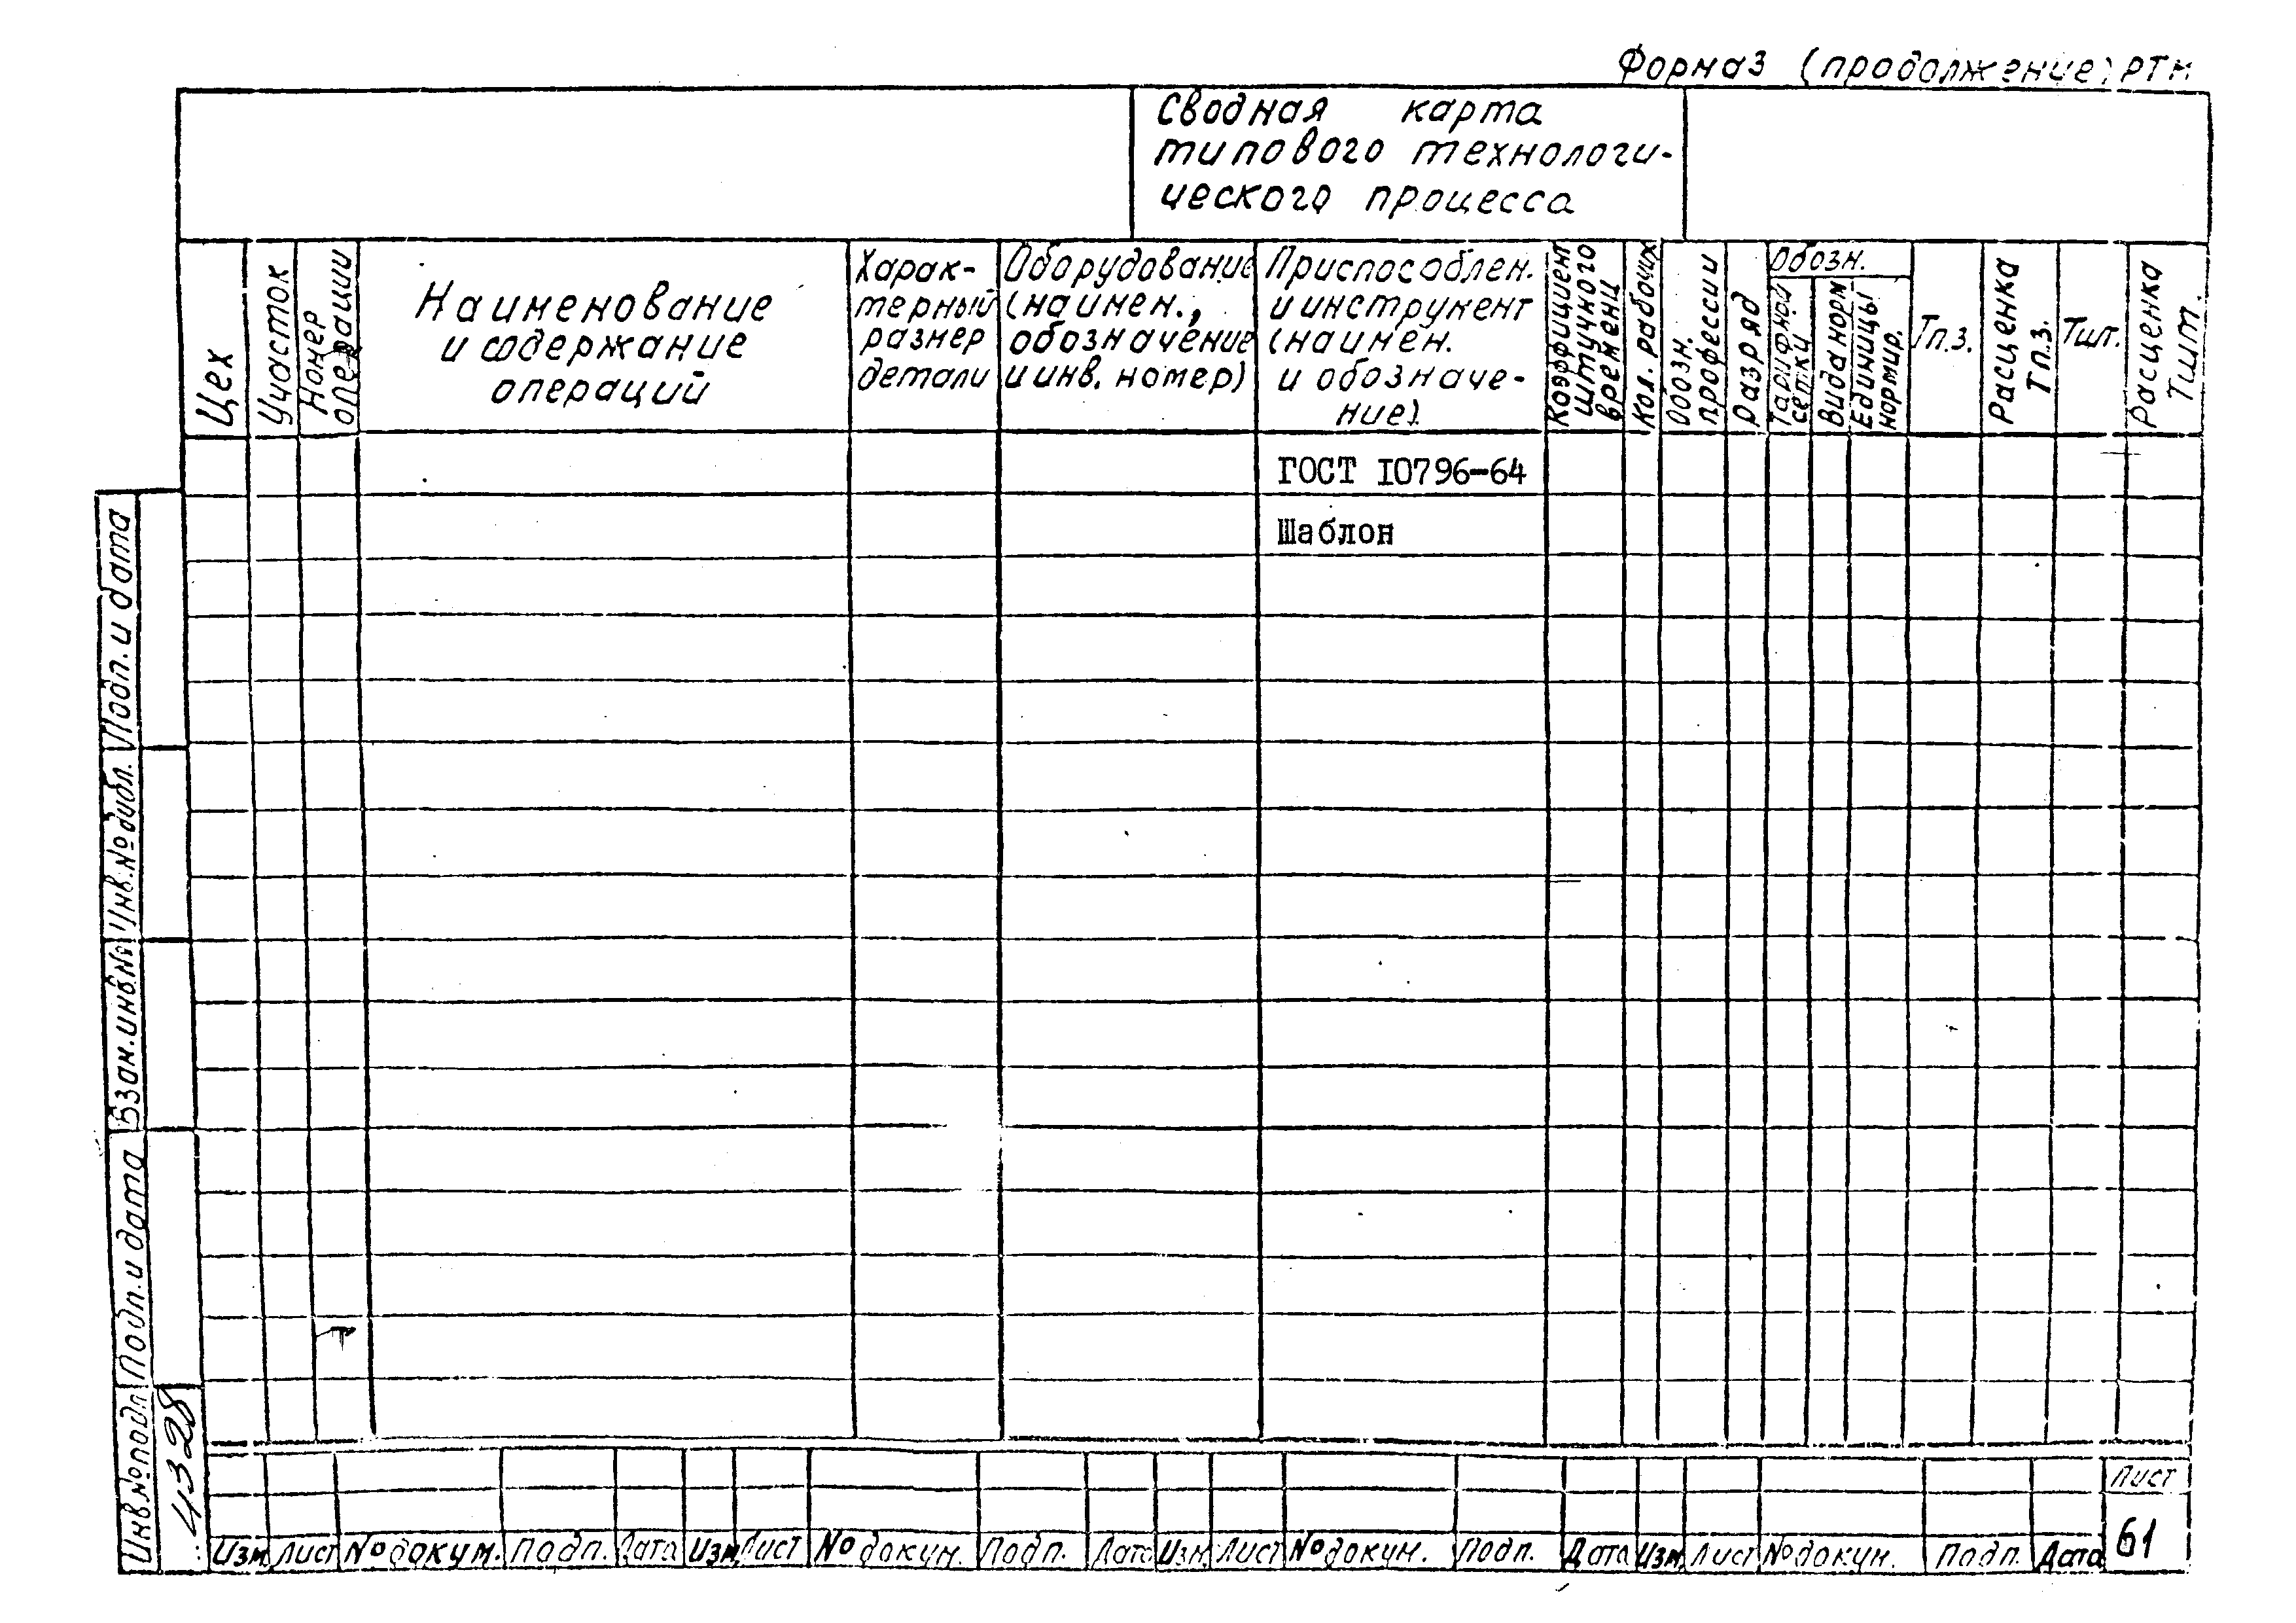 Форма 3 (продолжение) РТМ
Сводная карта
типового технологи-
ческого процесса
Цех
Участок
Номер
операции
Наименование
и содержание
операций
Харак-
терный
размер
детали
Оборудование
(наимен.,
обозначение
и инв. номер)
Приспособлен.
и инструмент
(наимен.
и обозначе-
ние)
Коэффициент
штучного
времени
Кол. рабочих
Обозн.
профессии
Разряд
Обозн.
Тарифной
сетки
Вида норм
Единицы
нормир.
Тп.з.
Расценка
Тп.з.
Тшт.
Расценка
Тшт.
ГОСТ 10796-64
Шаблон
Подп. и дата
Инв.№ дубл.
Взам.инв№
Подп. и дата
Инв№подл
4328
Изм Лист № докум. Подп. Дата Изм Лист № докум. Подп. Дата Изм. Лист № докум. Подп. Дата Изм Лист № докум. Подп. Дата
Лист
61